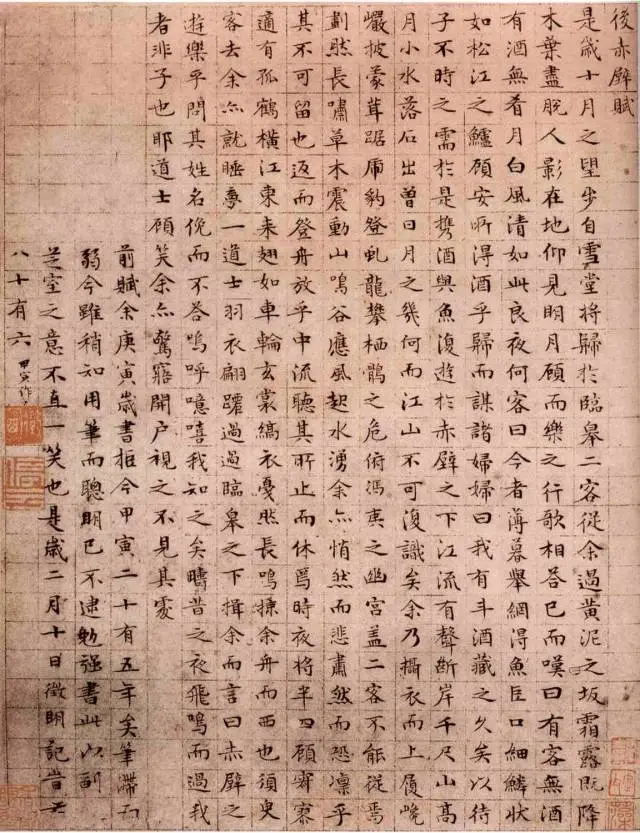 後赤壁賦
是歲十月之望步自雪堂將歸於臨皋二客從余過黃泥之坂霜露既降
木葉盡脫人影在地仰見明月顧而樂之行歌相答已而嘆曰有客無酒
有酒無肴月白風清如此良夜何客曰今者薄暮舉網得魚巨口細鱗狀
如松江之鱸顧安所得酒乎歸而謀諸婦婦曰我有斗酒藏之久矣以待
子不時之需於是攜酒與魚復遊於赤壁之下江流有聲斷岸千尺山高
月小水落石出曾日月之幾何而江山不可復識矣余乃攝衣而上履巉
巖披蒙茸踞虎豹登虬龍攀栖鶻之危俯馮夷之幽宮蓋二客不能從焉
劃然長嘯草木震動山鳴谷應風起水湧余亦悄然而悲肅然而恐凜乎
其不可留也返而登舟放乎中流聽其所止而休焉時夜將半四顧寂寥
適有孤鶴橫江東來翅如車輪玄裳縞衣戛然長鳴掠余舟而西也須臾
客去余亦就睡夢一道士羽衣翩躚過過臨皋之下揖余而言曰赤壁之
遊樂乎問其姓名俛而不答嗚呼噫嘻我知之矣疇昔之夜飛鳴而過我
者非子也耶道士顧笑余亦驚寤開戶視之不見其處
前賦余庚寅歲書拒今甲寅二十有五年矣筆滯而
弱今雖稍知用筆而聰明已不逮勉强書此以副
芝室之意不直一笑也是歲二月十日徵明記旹年
八十有六
甲寅作